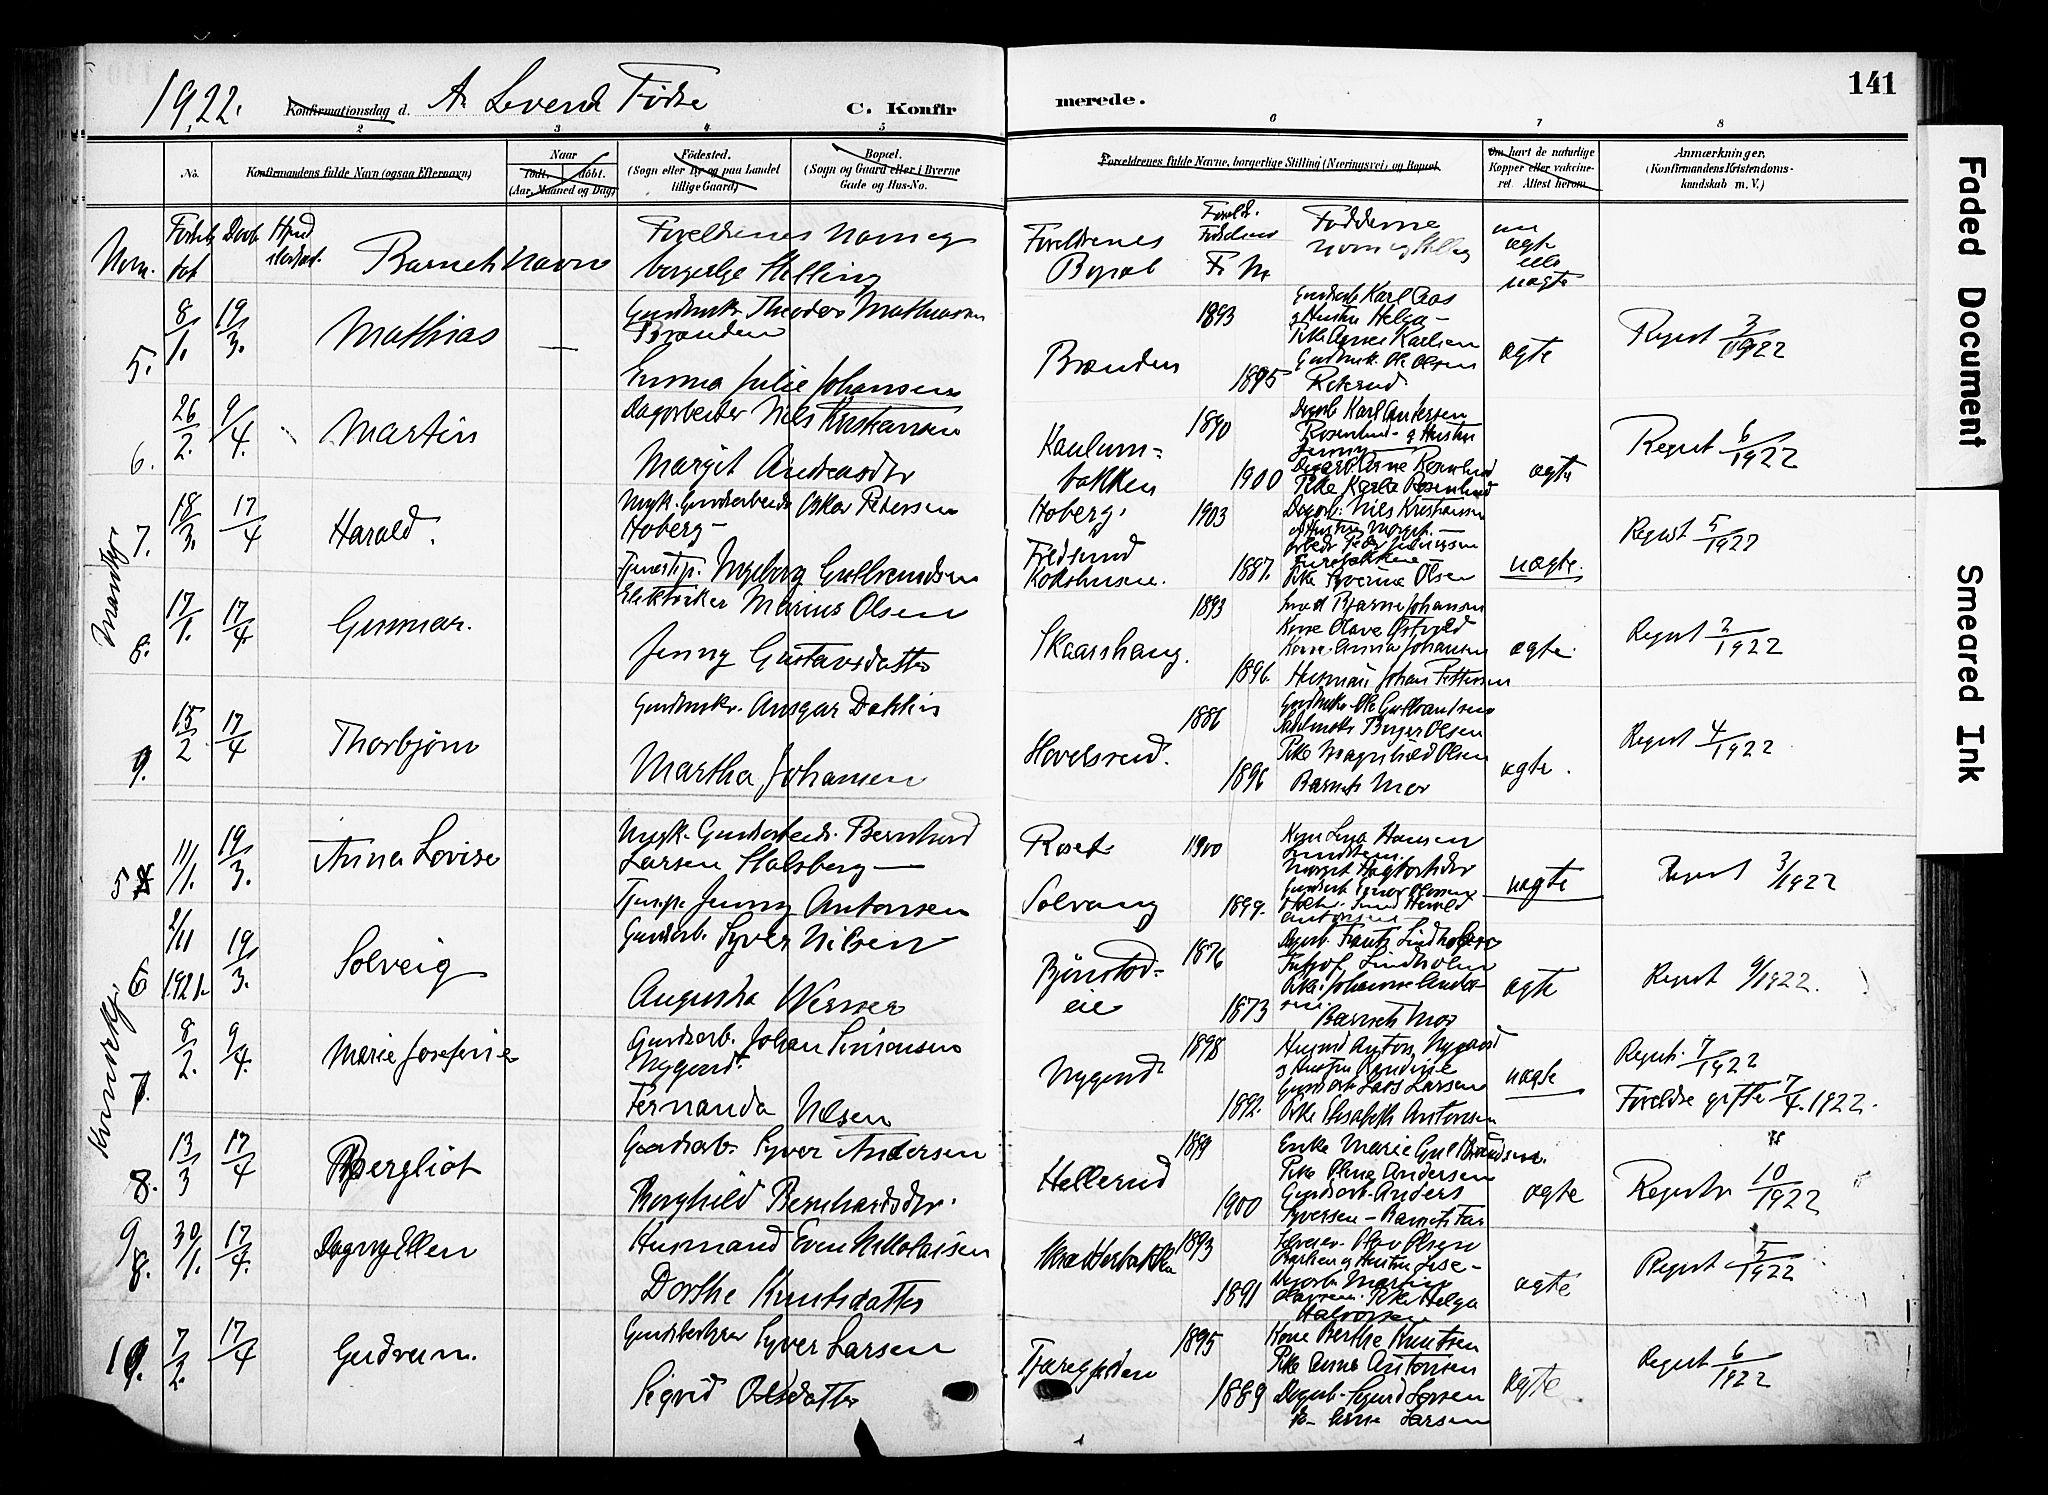 141
1922.
Konfirmationsdag d.
A. Levend Fødte
C. Konfirmerede.
2 3 4 5 6 7 8
No.
Konfirmandens fulde Navn (ogsaa Efternavn)
Naar
født. døbt.
(Aar, Maaned og Dag)
Fødested.
(Sogn eller By og paa Landet
tillige Gaard)
Bopæl.
(Sogn og Gaard eller i Byerne
Gade og Hus-No.
Forældrenes fulde Navne, borgerlige Stilling (Næringsvei) og Bopæl.
Om havt de naturlige
Kopper eller vaccineret. Attest herom
Anmærkninger.
(Konfirmandens Kristendomskundskab m. V.)
Num.
Barnets Navn
Foreldrenes Navn og
borgerlige Stilling
Foreldrenes
Bopæl
F. M.
Fadderne
Navn og Stilling
om
ægte
eller
uægte
Mandkj.
5. 8/1. 19/3. Mathias
Gundbruk. Theodor Mathiasen
Brænden
Emma Julie Johansen
Brænden 1893 1895
Gundarb. Karl Aas
og Hustru Helga
Pike Agnes Karlsen
Gundbruk. Ole Olsen
ægte
Regist 3/1922
6. 26/2. 9/4. Martin
Dagarbeider Nils Kristiansen
Margit Andreasdtr
Kaulumbakken 1890 1900
Dagarb. Karl Andersen
Rosenlund og Hustru
Jenny
Pike Karla Rosenlund
ægte
Regist 6/1922
7. 18/3. 17/4 Harald.
Ungk. Gundarbeider Oskar Petersen
Hoberg
Tjenestep. Ingeborg Gulbrandsen
Hoberg. 1903 1887.
Dagarb. Nils Kristiansen
og Hustru Margit
Pike Syverine Olsen
uægte.
Regist 5/1922
8. 17/1. 17/4. Gunnar.
Elektriker Marius Olsen
Jenny Gustavsdatter
Skaarshaug. 1893 1896.
Smed Bjarne Johansen
Kone Anna Johansen
Husmann Johan Pettersen
ægte.
Regist 2/1922
9. 15/2 17/4 Thorbjørn
Gundbrukr. Ansgar Dahlin
Martha Johansen
1886 1896
Gundbruk. Ole Gulbrandsen
Birger Olsen
Pike Magnhild Olsen
Barnets Mor
ægte.
Regist 4/1922
Kvindekj.
5 11/1. 19/3. Anna Lovise
Ungk. Gundarbeidr. Bernhard
Larsen Stalsberg
Tjen.p. Jenny Antonsen
Roset 1900
Solvang 1899.
Kone Lina Hansen
Antonsen
uægte
Regist 3/1922
6 2/11 1921. 19/3. Solveig
Gundarb. Syver Nilsen
Augusta Werner
Bjønstadeie 1876 1873
Dagarb. Frantz Lindholm
Lindholm
Pike Johanne Andersen.
Barnets Mor
ægte
Regist 9/1922.
7. 8/2. 9/4. Marie Josefine
Gundarb. Johan Simensen
Nygard
Fernanda Nilsen
Nygard 1898 1892.
Husmand Anton Nygaard
og Hustru Randine
Gundarb. Lars Larsen
Pike Elisabeth Antonsen
uægte
Regist. 7/1922
Foreldre gifte 7/4. 1922.
8. 13/3 17/4 Bergliot
Gundarb. Syver Andersen
Borghild Bernhardsdtr.
Hellerud 1899 1900
Enke Marie Gulbrandsen.
Pike Olina Andersen
Gundarb. Anders
Syversen - Barnets Far
ægte
Registr 10/1922
9 30/1. 17/4. Dagny Ellen
Husmand Even Nikolaisen
Dorthe Knutsdatter
1893 1891
Olav Olsen
og Hustru Lise -
Dagarb. Martin
Olavsen. Pike Helga
Halvorsen
ægte
Regist 5/1922
10. 7/2. 17/4 Gudrun.
Gundbruker Syver Larsen
Sigrid Olsdatter
1895 1889
Kone Berthe Knutsen
Pike Anna Antonsen
Dagarb. Sigurd Larsen
ægte
Regist 6/1922
Faded Document
Smeared Ink